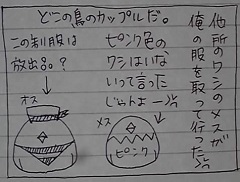 どこの鳥のカップルだ。
他の所の服を着てメスが
俺の服を取って行った!!
ピンク色の
ワシはいな
いって言った
じゃんよー!!
この制服は
放出品?
オス
メス
ピンク